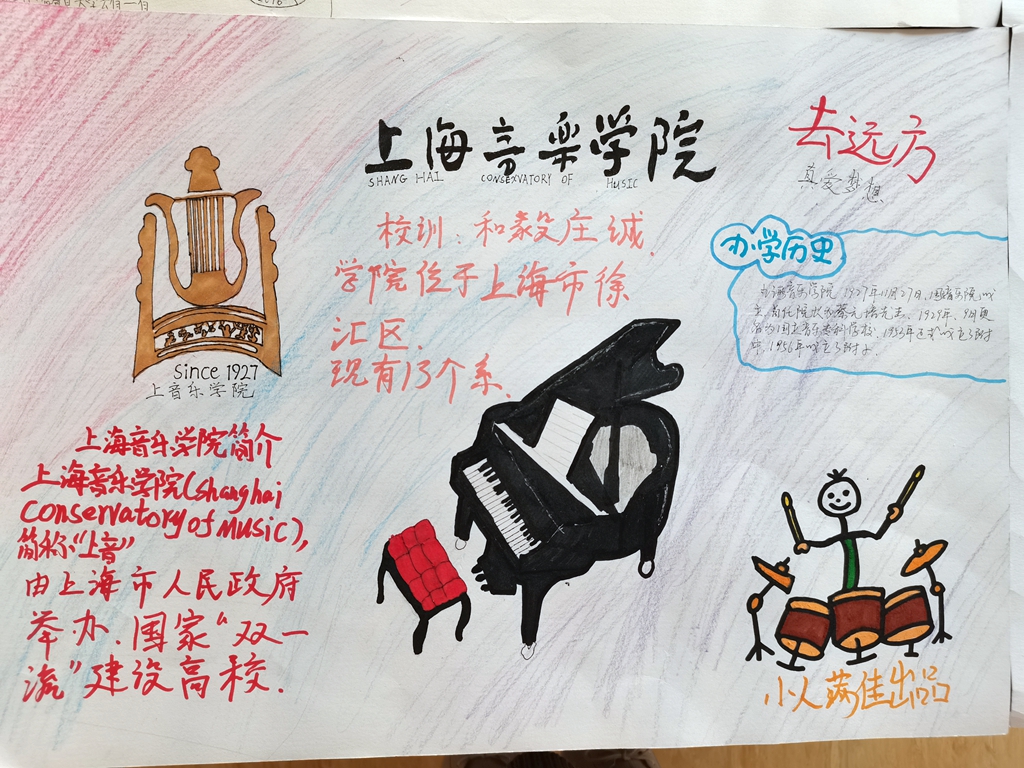 上海音乐学院
SHANG HAI CONSEXVATORY OF MUSIC
去远方
真爱梦想
校训：和毅庄诚.
学院位于上海市徐
汇区.
现有13个系.
办学历史
上海音乐学院 1927年11月27日,国音乐院成
立,首任院长由蔡元培
1929年、9月更
名为国立音乐专科学校,
中,1956年成立了附小.
Since 1927
上音乐学院
上海音乐学院简介
上海音乐学院(shanghai
Conservatory of Music),
简称"上音"
由上海市人民政府
举办.国家"双一
流"建设高校.
小人 佳出品